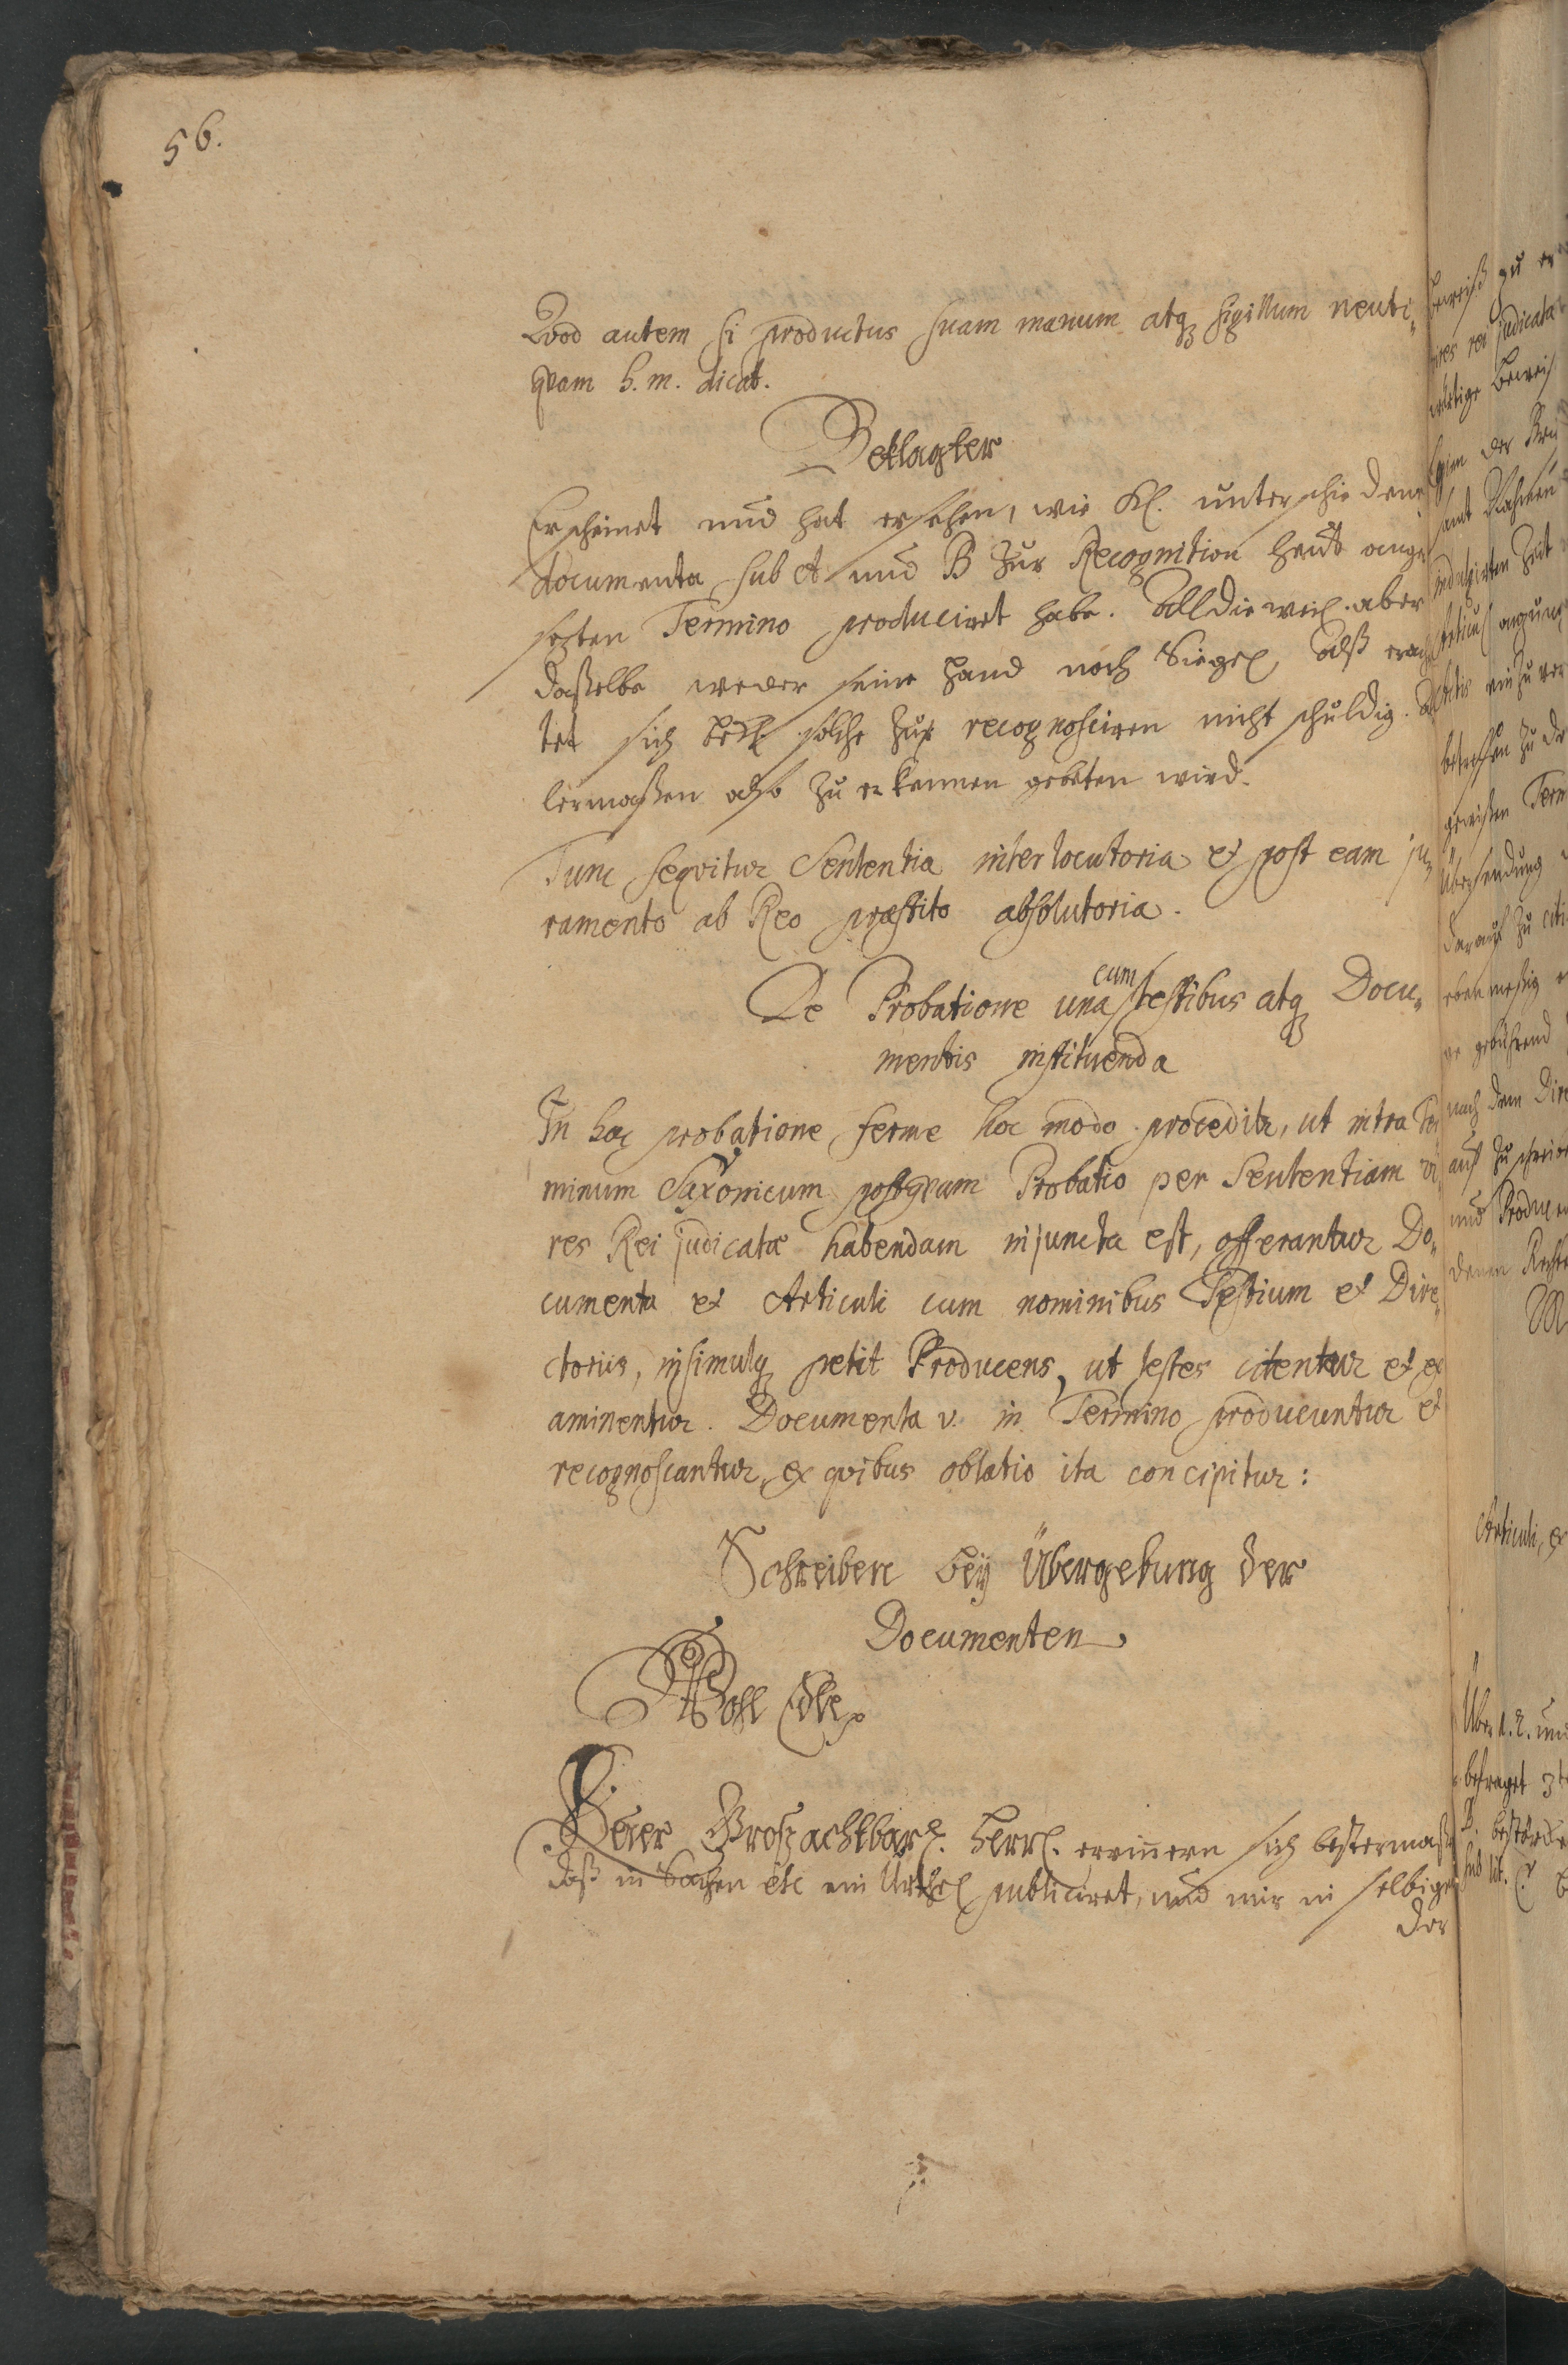 56.
Qvod autem si productus suam manum atq sigillum neuti„
qvam h. m. dicat.
Beklagter
Erscheinet und hat ersehen, wie Kl. unterschiedene
documenta sub A und B zur Recognition heut ange
sezten Termino produciret habe. Alldieweil aber
daßelbe weder seine Hand noch Siegel, alß erach
tet sich Bekl. solche zu recognosciren nicht schuldig.
lermaßen also zu erkennen gebeten wird.
Tunc seqvitur Sententia interlocutoria et post eam ju„
ramento ab Reo præstito absolutoria.
De Probatione una cum testibus atq Docu„
mentis instituenda
In hac probatione ferme hoc modo proceditr, ut intra Ter
minum Saxonicum postqvam Probatio per Sententiam vi„
res Rei judicatæ habendam injuncta est, offerantur Do„
cumenta et Articuli cum nominibus Testium et Dire„
ctoriis, insimulq petit Producens, ut testes citentur et ex
aminentur. Documenta v. in Termino producuntur et
recognoscantur, ex qvibus oblatio ita concipitur:
Schreiben bey Übergebung der
Documenten
Wohl Edle
Deser Großachtbarl. Herrl. erinnern sich bestermaß
daß in Sachen etc ein Urthel publiciret, und mir in selbigen
der